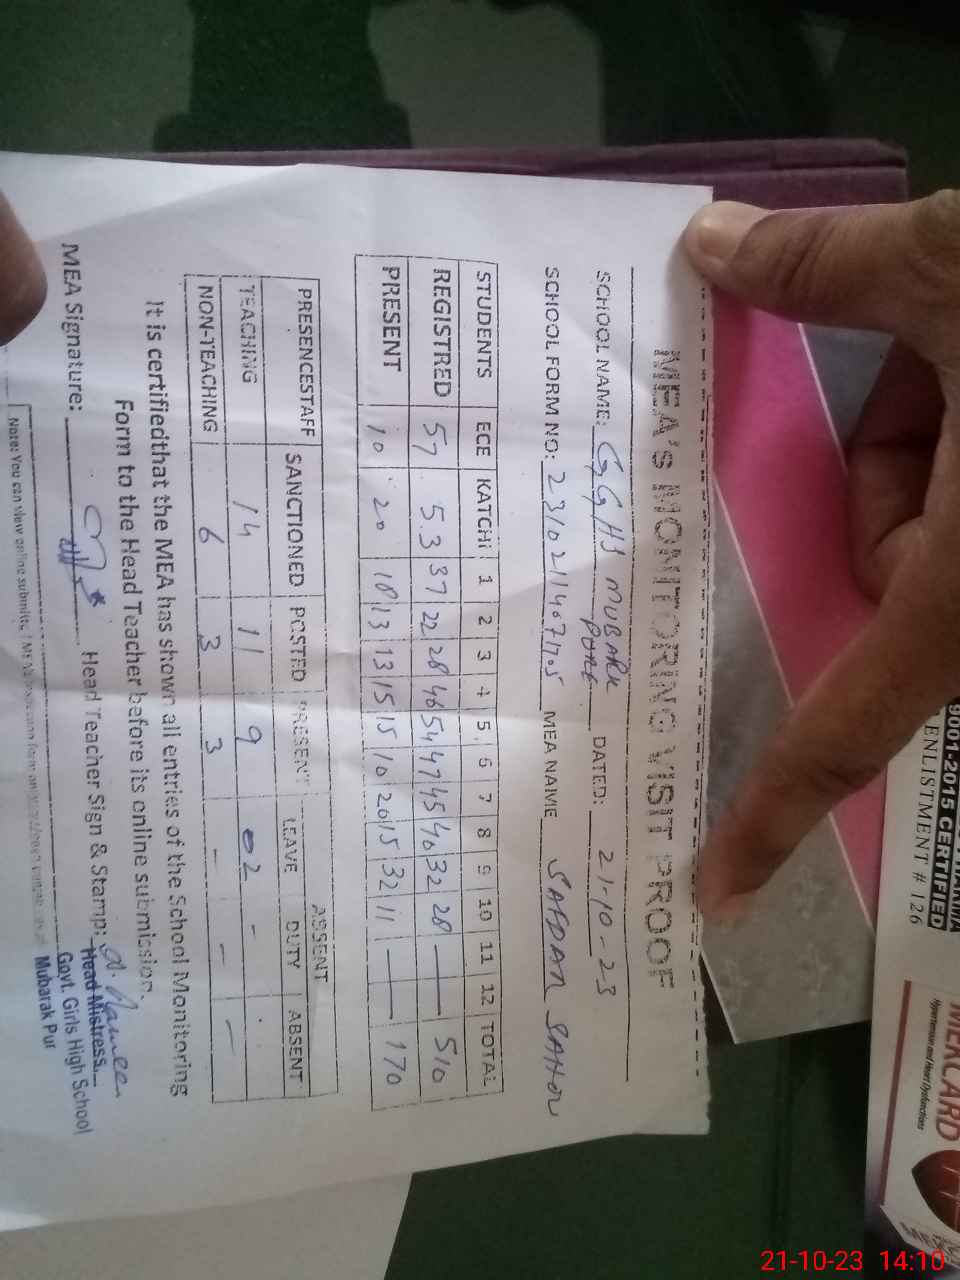 MEA'S MONITORING VISIT PROOF
SCHOOL NAME: GGHS MUBARK PURE DATED: 21-10-23
SCHOOL FORM NO: 23102114071705 MEA NAME SAFDAR
STUDENTS ECE KATCHI 1 2 3 4 5 6 7 8 9 10 11 12 TOTAL
REGISTRED 57 53 37 22 28 46 54 47 45 40 32 28 — 510
PRESENT 10 20 18 13 13 15 15 10 20 15 32 11 — 170
PRESENCESTAFF SANCTIONED POSTED PRESENT ABSENT
LEAVE DUTY ABSENT
TEACHING 14 11 9 02 -
NON-TEACHING 6 3 3 - - -
It is certifiedthat the MEA has shown all entries of the School Monitoring
Form to the Head Teacher before its online submission.
MEA Signature: Head Teacher Sign & Stamp:
Head Mistress
Govt. Girls High School
Mubarak Pur
Note: You can view online submitted
9001-2015 CERTIFIED
ENLISTMENT # 126
MERCARD
Hypertension and Heart Dysfunctions
21-10-23 14:10